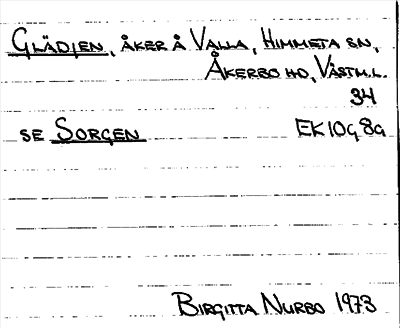 GLÄDJEN, ÅKER Å VALLA, HIMMETA SN,
ÅKERBO HD, VÄSTM.L.
34
SE SORGEN EK 10g 8a
BIRGITTA NURBO 1973